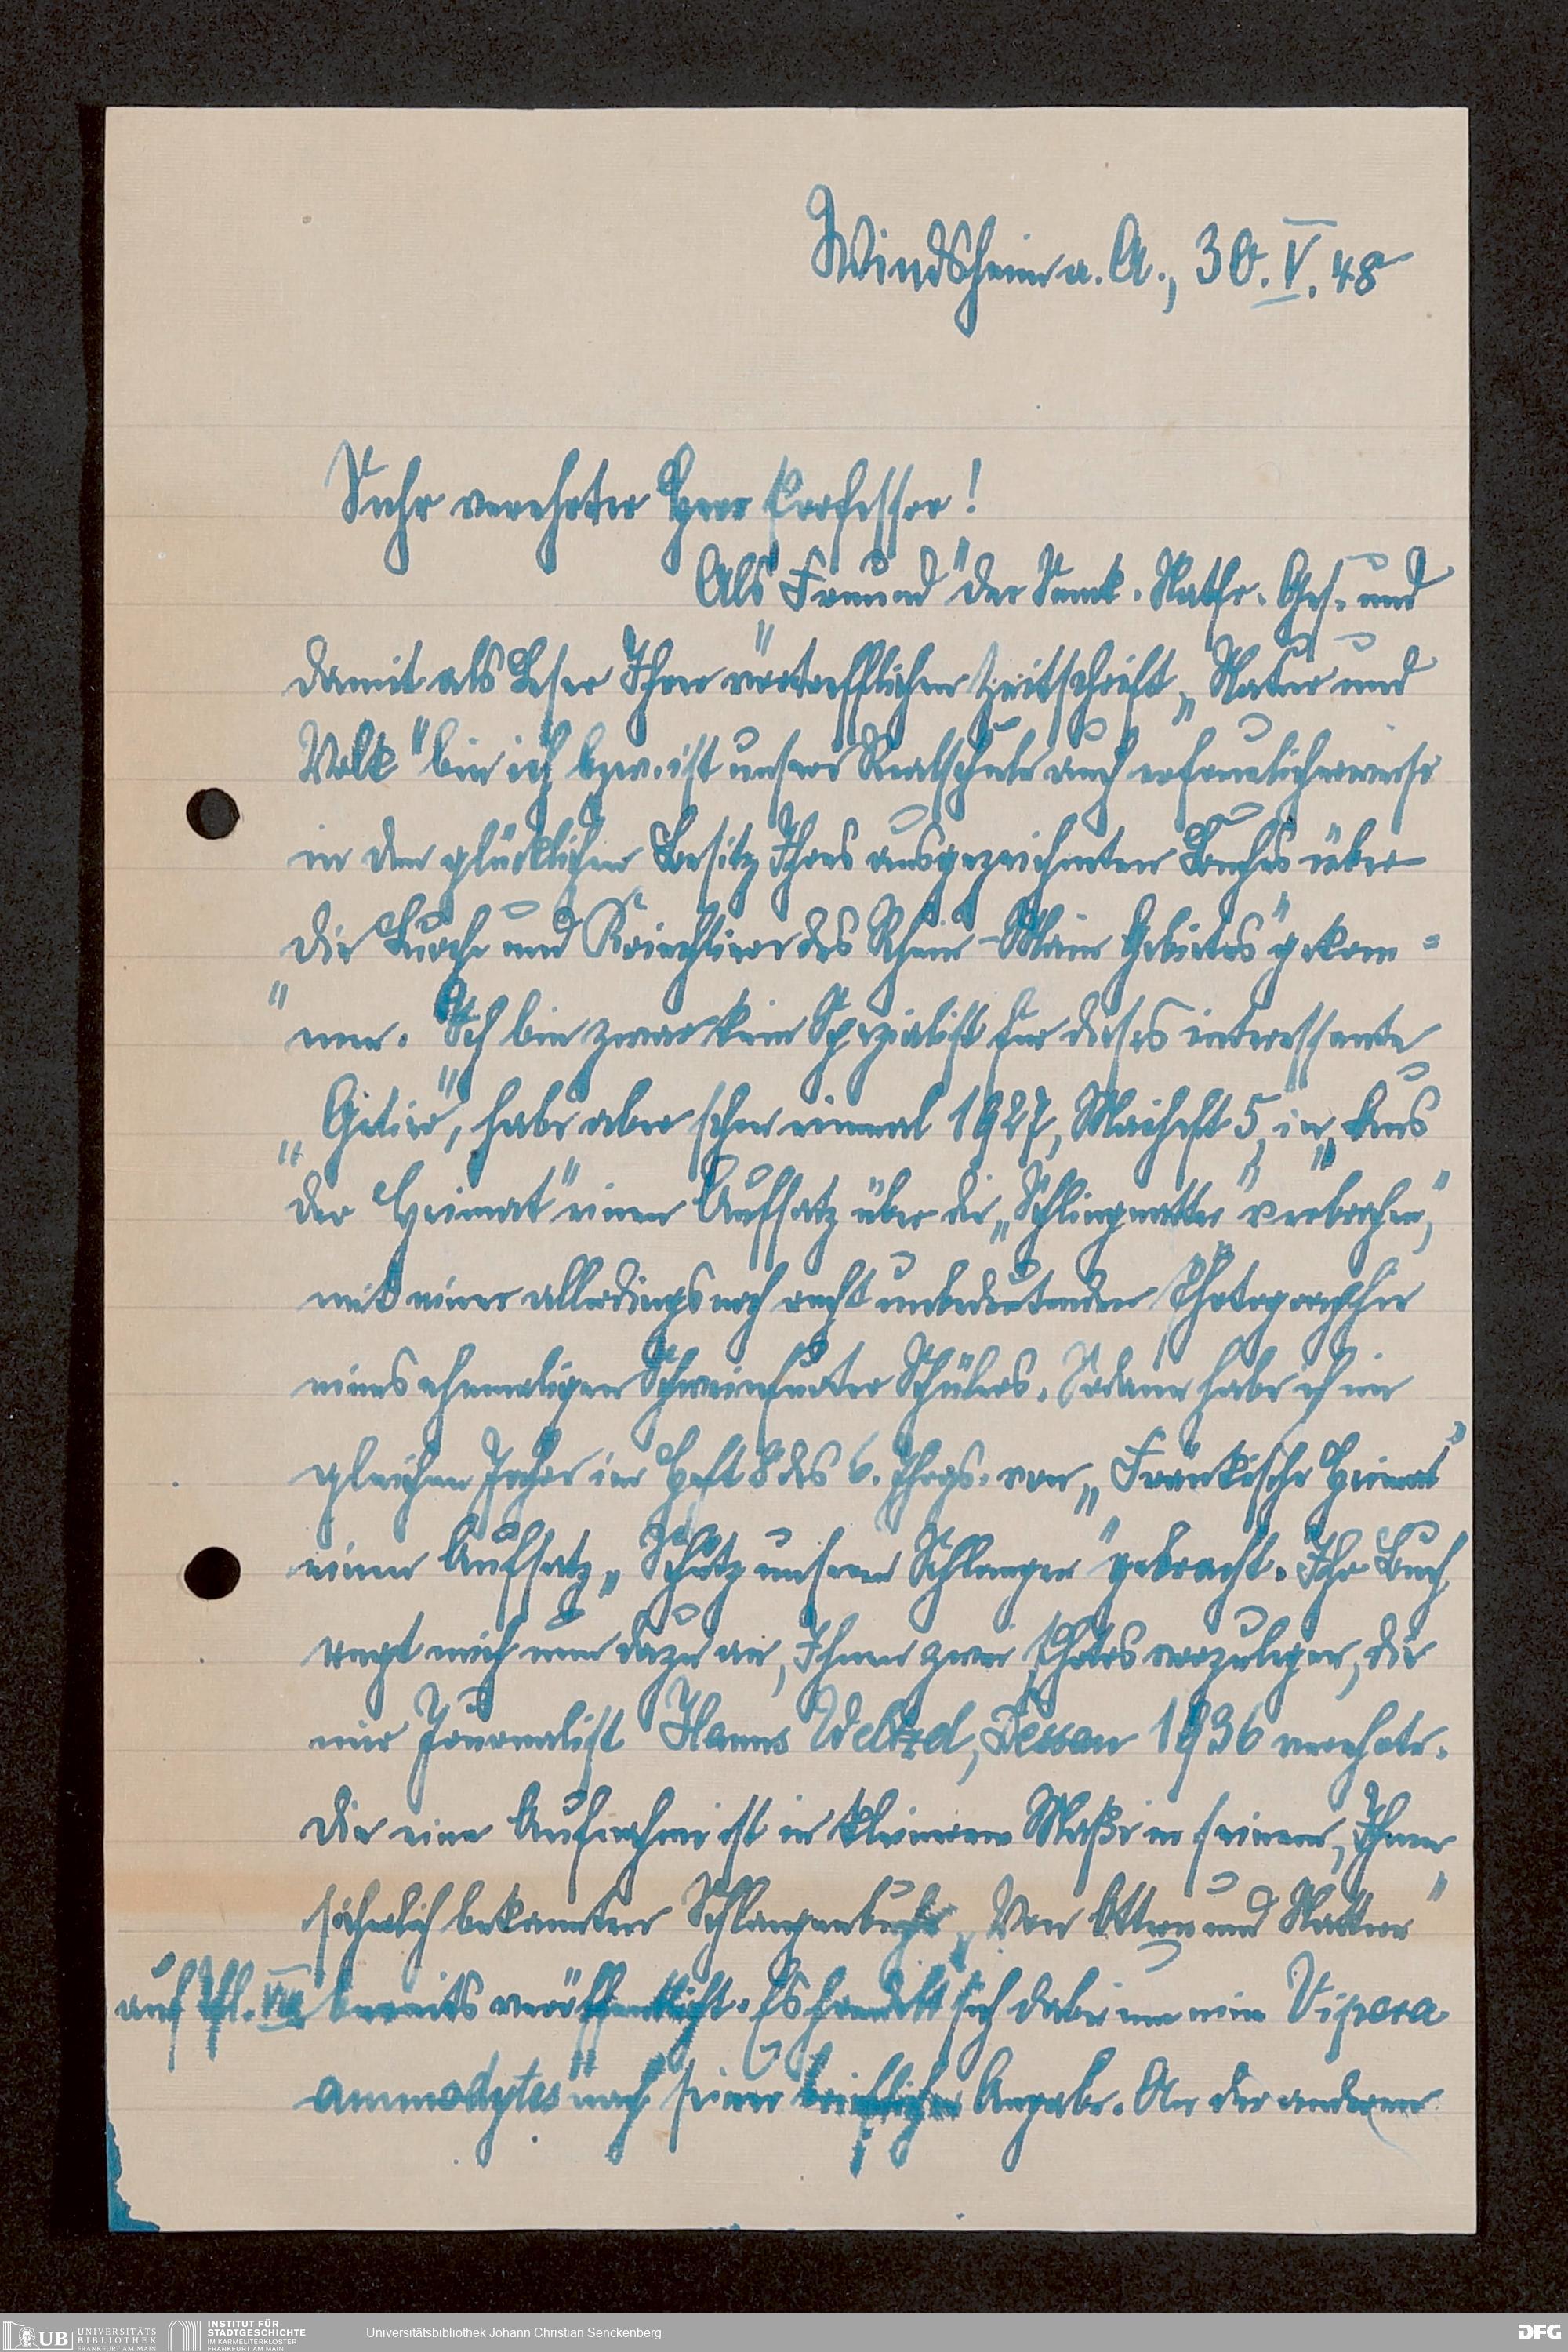 Windsheim a. A., 30. V. 48
Sehr verehrter Herr Professor!
Als „Freund" der Senck. Natfr. Ges. und
damit als Leser Ihrer vortrefflichen Zeitschrift „Natur und
Volk" bin ich bzw. ist unsere Realschule auch erfreulicherweise
in den glücklichen Besitz Ihres ausgezeichneten Buches über
„die Lurche und Kriechtiere des Rhein-Main Gebietes" gekom=
men. Ich bin zwar kein Spezialist für dieses interessante
„Getier", habe aber schon einmal 1927, Maiheft 5, in „Aus
der Heimat" einen Aufsatz über die „Schlingnatter" „verbrochen",
mit einer allerdings noch recht unbedeutenden Photographie
eines ehemaligen Schweinfurter Schülers. Sodann habe ich im
gleichen Jahre in Heft 8 des 6. Jhrgs. von „Fränkische Heimat"
einen Aufsatz „Schutz unseren Schlangen" gebracht. Ihr Buch
regt mich nun dazu an, Ihnen zwei Photos vorzulegen, die
mir Journalist Hanns Dessau 1936 verehrte.
Die eine Aufnahme ist in kleinerem Maße in seinem, Ihnen
sicherlich bekannten Schlangenbuche „Von Ottern und Nattern"
auf Tfl. VII bereits veröffentlicht. Es handelt sich dabei um eine Vipera
ammodytes nach seiner brieflichen Angabe. An der anderen
UB UNIVERSITÄTS BIBLIOTHEK FRANKFURT AM MAIN
INSTITUT FÜR STADTGESCHICHTE IM KARMELITERKLOSTER FRANKFURT AM MAIN
Universitätsbibliothek Johann Christian Senckenberg
DFG